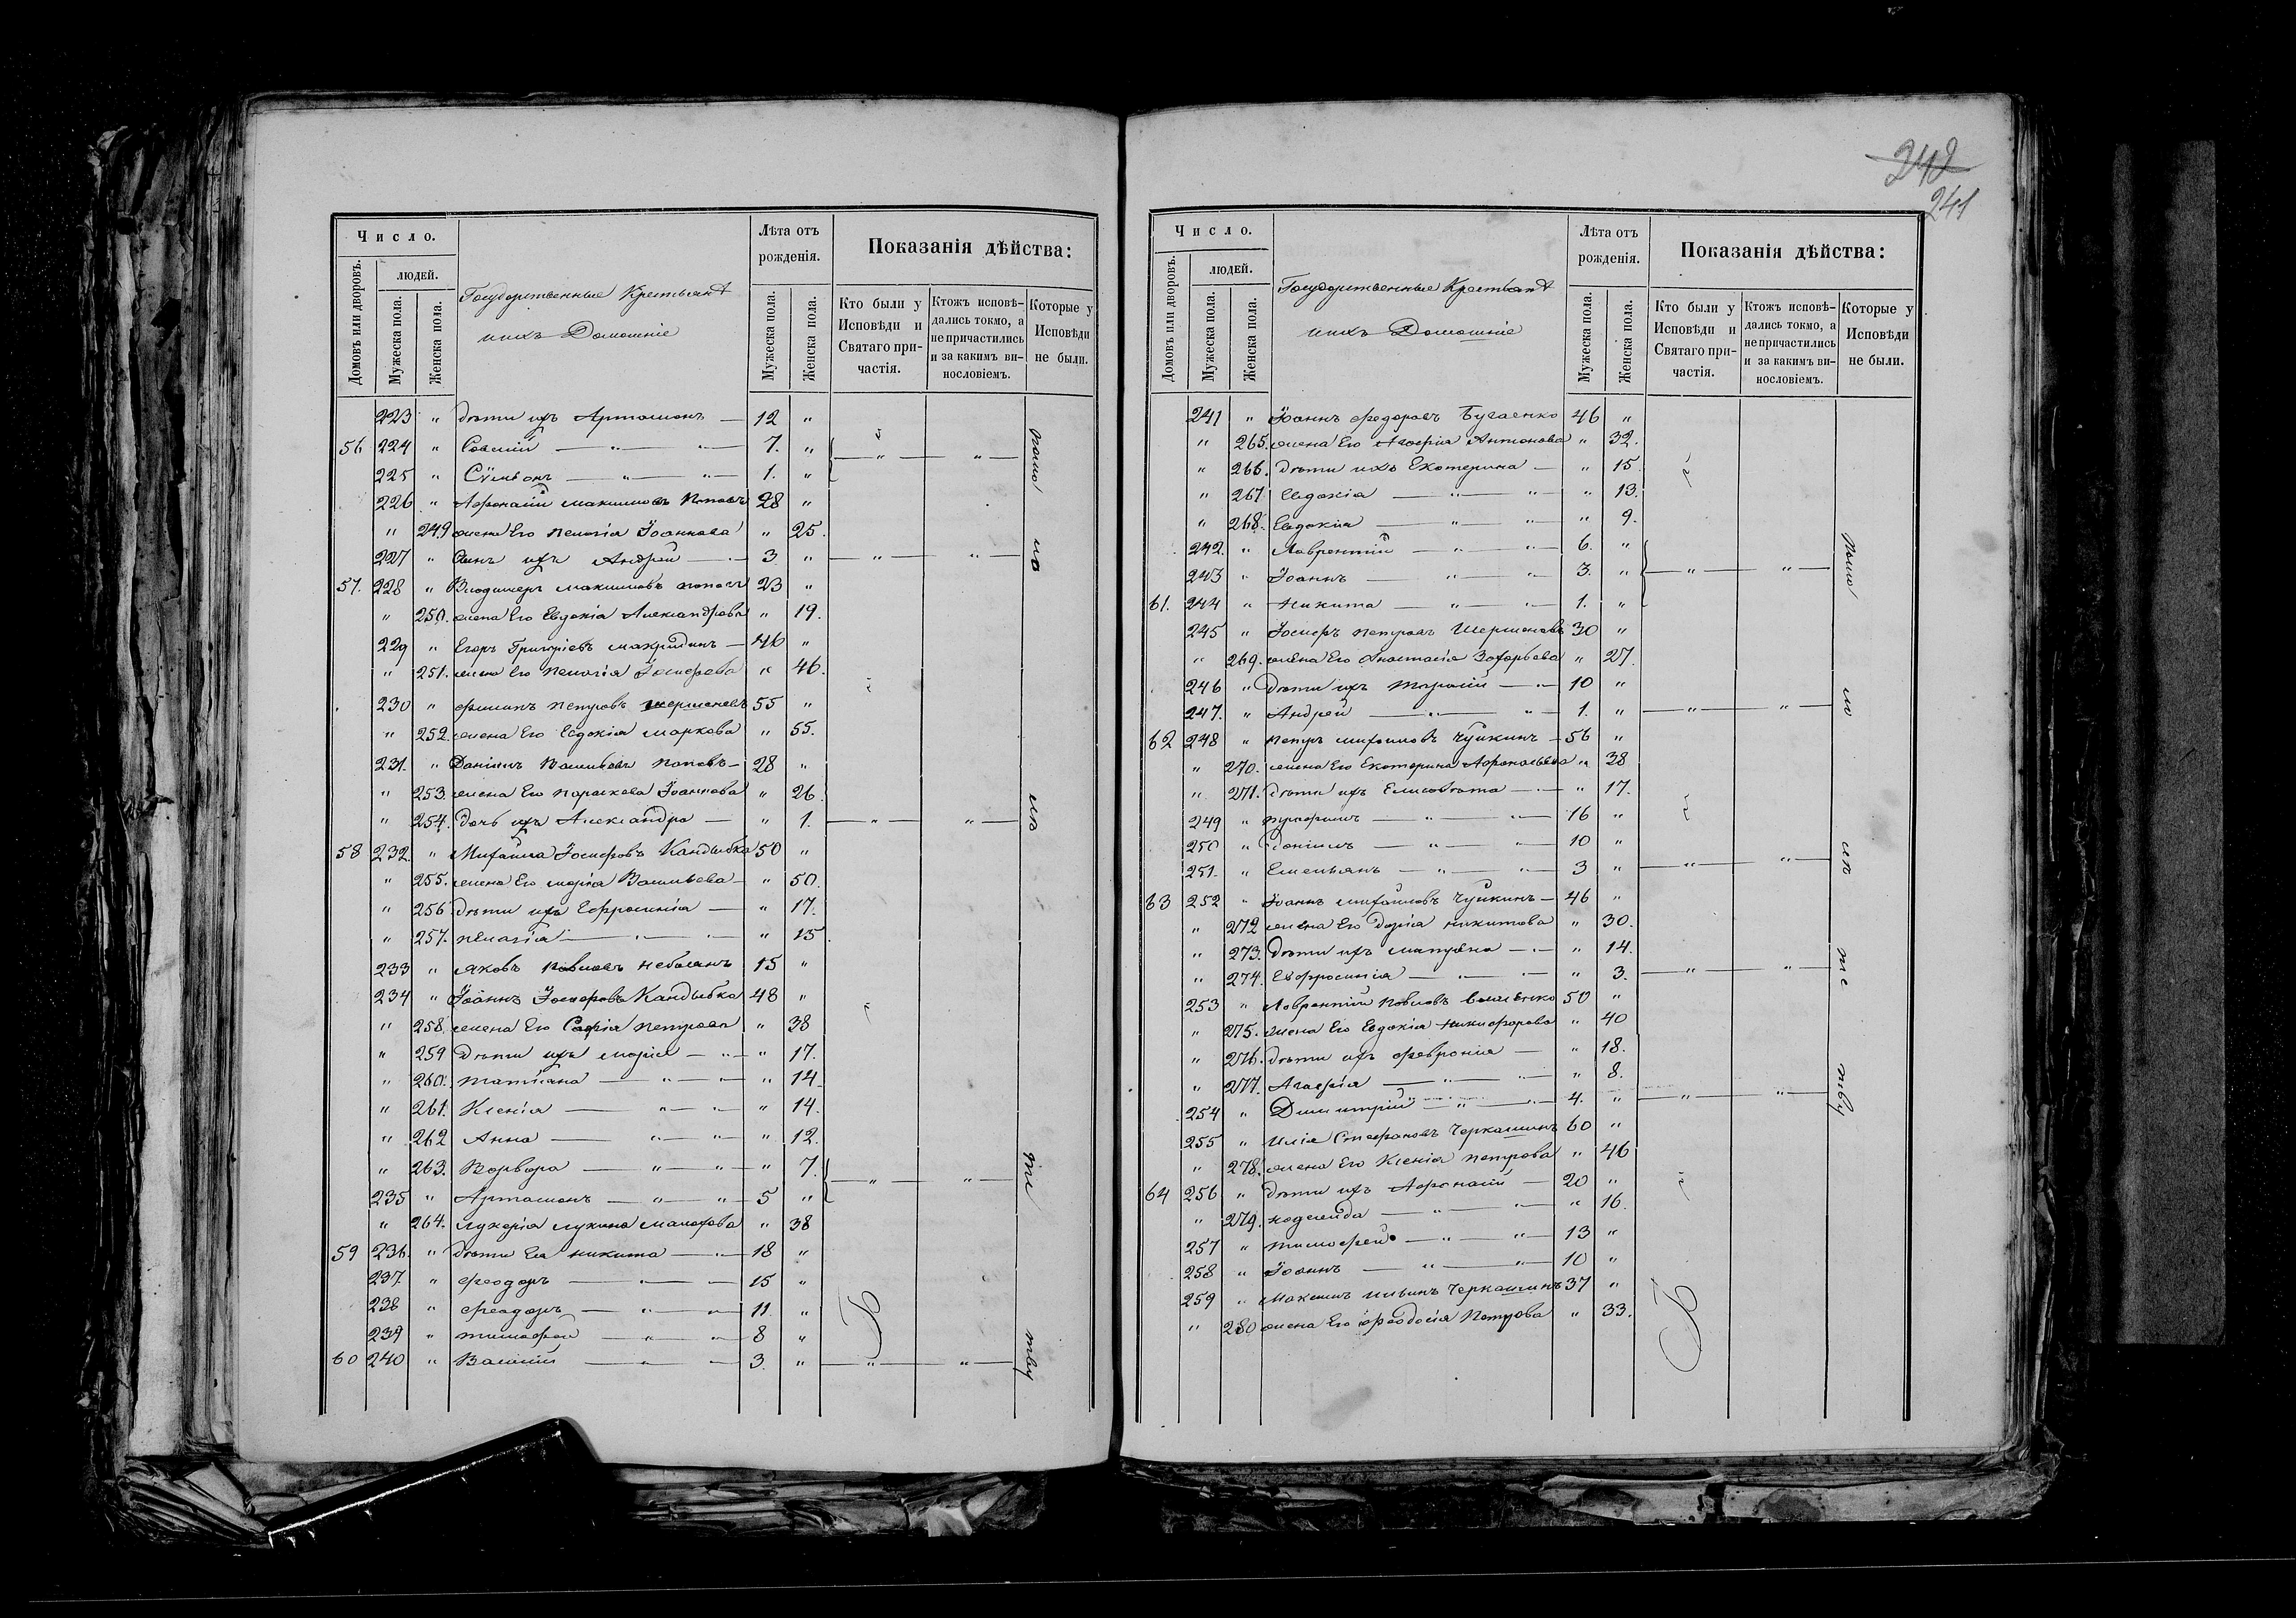 Число.
людей.
Домовъ или дворовъ.
Мужеска пола.
Женска пола.
Государственные Крестьяне
и ихъ Домашніе
Лѣта отъ рожденія.
Мужеска пола.
Женска пола.
Показанія дѣйства:
Кто были у Исповѣди и Святаго причастія.
Ктожъ исповѣдались токмо, а не причастились и за какимъ винословіемъ.
Которые у Исповѣди не были.
223 " дѣти ихъ Артамонъ — 12 "
56 224 " Савелій — " — " — 7. "
225 " Сѵмеонъ — " — " — 1. "
226 " Афонасій Максимовъ Поповъ 28 "
" 249 жена Его Пелагія Іоаннова " 25.
227 " Сынъ ихъ Андрей — 3. " — " — " —
57. 228 " Владимеръ Максимовъ Поповъ 23 "
" 250. жена Его Евдокія Александрова " 19.
229 " Егоръ Григоріевъ — 46 "
" 251. жена Его Пелагія Іосифова " 46.
230 " Филипъ Петровъ Шершеневъ 55 "
" 252. жена Его Евдокія Маркова " 55.
231. " Даніилъ Васильевъ Поповъ — 28 "
" 253. жена Его Параскева Іоаннова " 26.
" 254. дочь ихъ Александра — " 1. — " — " —
58 232. " Михаила Іосифовъ Кандыбка 50 "
" 255. жена Его Марія Васильева — " 50.
" 256 дѣти ихъ Ефросинія — " 17.
" 257. Пелагія — " — " 15.
233 " Яковъ Павловъ 15 "
234 " Іоаннъ Іосифовъ Кандыбка 48 "
" 258. жена Его Софія Петрова " 38
" 259 дѣти ихъ Марія — " — " 17.
" 260. Татіана — " — " 14.
" 261. Ксенія — " — " — " 14.
" 262 Анна — " — " — " 12.
" 263. Варвара — " — " — " 7.
235 " Артамонъ — " — " — 5 " — " — " —
" 264. Лукерія Лукина " 38
59 236. " дѣти Ея Никита — " — 18 "
237. " Феодоръ — " — 15 "
238 " Феодоръ — " — " — 11. "
239 " Тимофей — " — " — 8 "
60 240 " Василій — " — 3. " — " — " —
242
241
Число.
людей.
Домовъ или дворовъ.
Мужеска пола.
Женска пола.
Государственные Крестьяне
и ихъ Домашніе
Лѣта отъ рожденія.
Мужеска пола.
Женска пола.
Показанія дѣйства:
Кто были у Исповѣди и Святаго причастія.
Ктожъ исповѣдались токмо, а не причастились и за какимъ винословіемъ.
Которые у Исповѣди не были.
241 " Іоаннъ Федоровъ Бугаенко 46 "
" 265. жена Его Агафія Антонова " 32.
" 266. дѣти ихъ Екатерина — " 15.
" 267. Евдокія — " — " — " 13.
" 268. Евдокия — " — " — " 9.
242. " Лаврентій — " — " — 6. "
243 " Іоаннъ — " — " — 3. " — " — " —
61. 244 " Никита — " — " — 1. "
245 " Іосифъ Петровъ Шершеневъ 30 "
" 269. жена Его Анастасія Захарьева " 27.
246 " дѣти ихъ Тарасій — " — 10 "
247. " Андрей — " — " — 1. " — " — " —
62 248 " Петръ Михаиловъ Чуйкинъ — 56 "
" 270. жена Его Екатерина Афонасьева " 38
" 271. дѣти ихъ Елисовѣта — " 17.
249 " — " — " — 16 "
250 " Даніилъ — " — " — 10 "
251. " Емельянъ — " — " — 3 " — " — " —
63 252 " Іоаннъ Михаиловъ Чуйкинъ — 46 "
" 272 жена Его Дарія Никитова " 30.
" 273. дѣти ихъ Матрена — " — " 14.
" 274. Евфросинія — " — " 3. — " — " —
253 " Лаврентій Повловъ 50 "
" 275. жена Его Евдокія Никифорова " 40
" 276. дѣти ихъ Февронія — " 18.
" 277. Агафія — " — " — " 8.
254 " Димитрій — " — " — 4. " — " — " —
255 " Илія Стефановъ Черкашинъ 60 "
" 278. жена Его Ксенія Петрова " 46
64 256 " дѣти ихъ Афонасій — 20 "
" 279. Надежда — " — " — " 16.
257 " Тимофей — " — " — 13 "
258 " Іоаннъ — " — " — 10 "
259 " Максимъ Ильинъ Черкашинъ 37 "
" 280 жена Его Феодосія Петрова " 33.